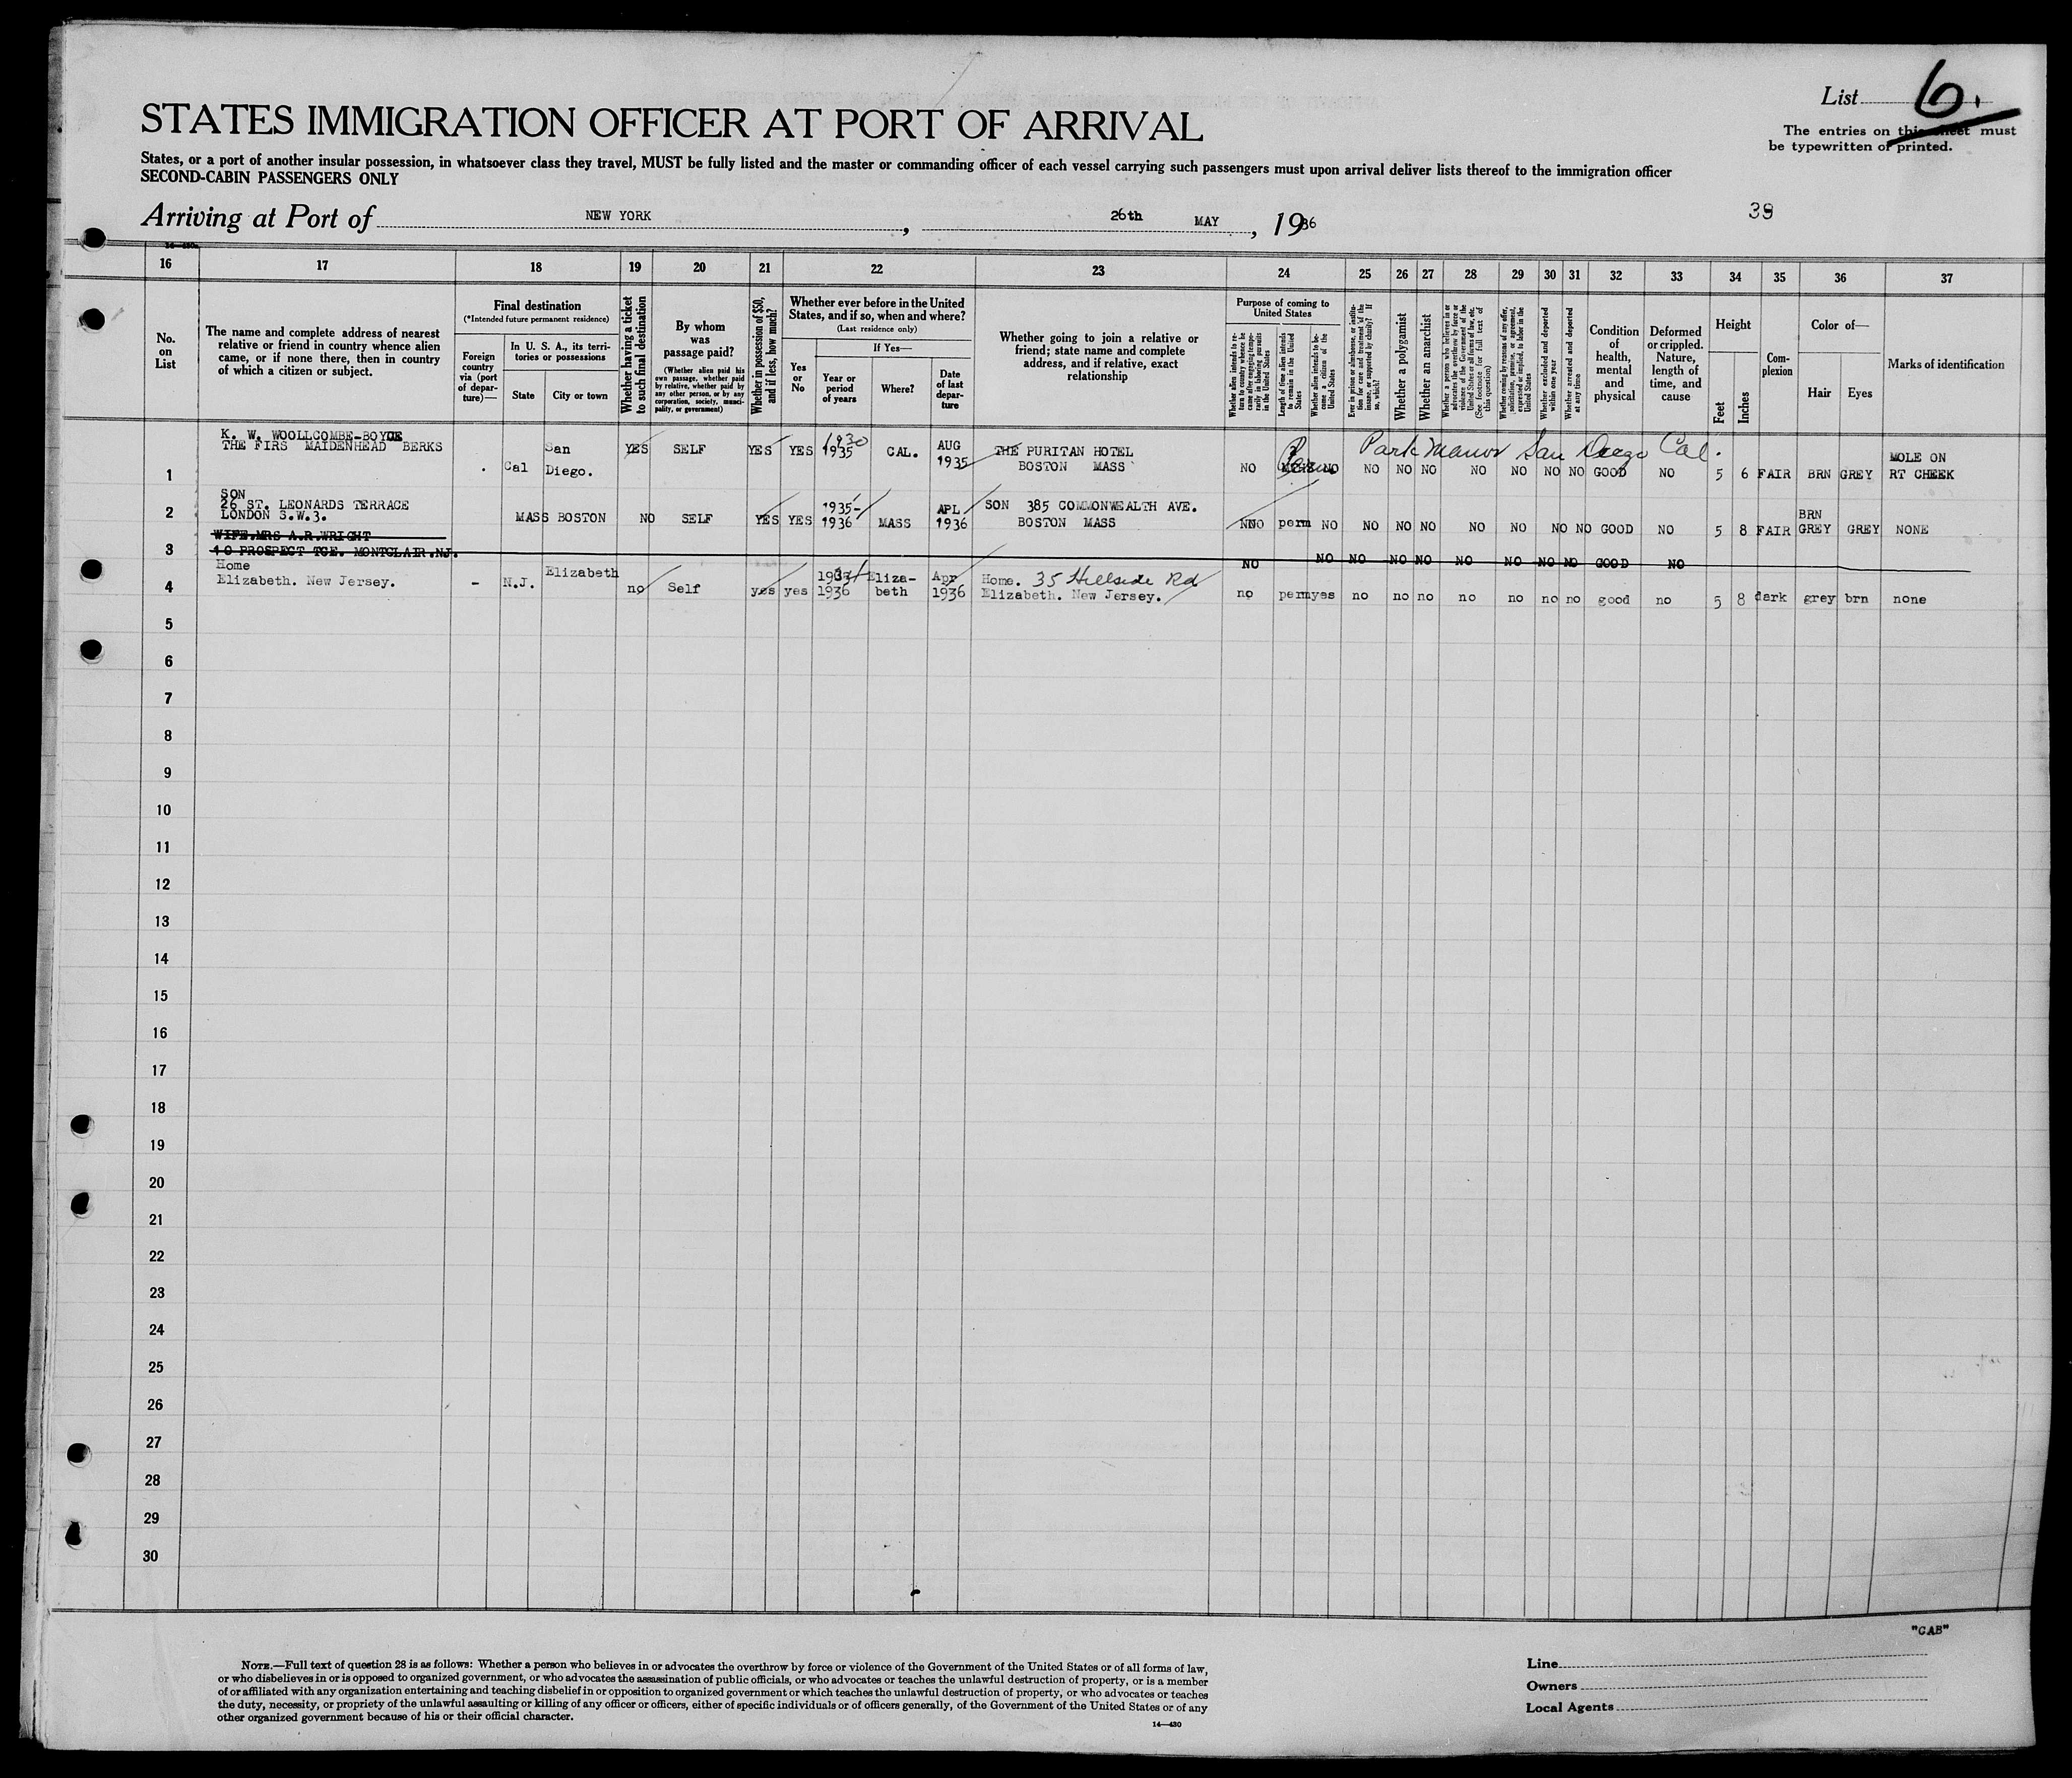 List 6.
The entries on this sheet must
be typewritten or printed.
STATES IMMIGRATION OFFICER AT PORT OF ARRIVAL
States, or a port of another insular possession, in whatsoever class they travel, MUST be fully listed and the master or commanding officer of each vessel carrying such passengers must upon arrival deliver lists thereof to the immigration officer
SECOND-CABIN PASSENGERS ONLY
Arriving at Port of NEW YORK, 26th MAY, 1936
39
16 17 18 19 20 21 22 23 24 25 26 27 28 29 30 31 32 33 34 35 36 37
No. on List
The name and complete address of nearest
relative or friend in country whence alien
came, or if none there, then in country
of which a citizen or subject.
Final destination
(*Intended future permanent residence)
Foreign country via (port of departure)—
In U. S. A., its territories or possessions
State
City or town
Whether having a ticket to such final destination
By whom was passage paid?
(Whether alien paid his own passage, whether paid by relative, whether paid by any other person, or by any corporation, society, municipality, or government)
Whether in possession of $50, and if less, how much?
Whether ever before in the United
States, and if so, when and where?
(Last residence only)
Yes or No
If Yes—
Year or period of years
Where?
Date of last departure
Whether going to join a relative or
friend; state name and complete
address, and if relative, exact
relationship
Purpose of coming to United States
Whether alien intends to return to country whence he came after engaging temporarily in laboring pursuits in the United States
Length of time alien intends to remain in the United States
Whether alien intends to become a citizen of the United States
Ever in prison or almshouse, or institution for care and treatment of the insane, or supported by charity? If so, which?
Whether a polygamist
Whether an anarchist
Whether a person who believes in or advocates the overthrow by force or violence of the Government of the United States or all forms of law, etc. (See footnote for full text of this question)
Whether coming by reasons of any offer, solicitation, promise, or agreement, expressed or implied, to labor in the United States
Whether excluded and deported within one year
Whether arrested and deported at any time
Condition of health, mental and physical
Deformed or crippled. Nature, length of time, and cause
Height
Feet
Inches
Complexion
Color of—
Hair
Eyes
Marks of identification
K. W. WOOLLCOMBE-BOYCE
THE FIRS MAIDENHEAD BERKS
1 Cal San Diego. YES SELF YES YES 1930 1935 CAL. AUG 1935 THE PURITAN HOTEL BOSTON MASS NO Perm NO NO NO NO NO NO NO NO GOOD NO 5 6 FAIR BRN GREY MOLE ON RT CHEEK
Park Manor San Diego Cal.
SON
26 ST. LEONARDS TERRACE
LONDON S.W.3.
2 MASS BOSTON NO SELF YES YES 1935-1936 MASS APL 1936 SON 385 COMMONWEALTH AVE. BOSTON MASS NO perm NO NO NO NO NO NO NO NO GOOD NO 5 8 FAIR BRN GREY GREY NONE
WIFE.MRS A.R.WRIGHT
3 10 PROSPECT TCE. MONTCLAIR.NJ. NO NO NO NO NO NO NO NO NO GOOD NO
Home
Elizabeth. New Jersey.
4 - N.J. Elizabeth no Self yes yes 1934 1936 Elizabeth Apr 1936 Home. 35 Hillside Rd Elizabeth. New Jersey. no perm yes no no no no no no no good no 5 8 dark grey brn none
5
6
7
8
9
10
11
12
13
14
15
16
17
18
19
20
21
22
23
24
25
26
27
28
29
30
"CAB"
NOTE.—Full text of question 28 is as follows: Whether a person who believes in or advocates the overthrow by force or violence of the Government of the United States or of all forms of law,
or who disbelieves in or is opposed to organized government, or who advocates the assassination of public officials, or who advocates or teaches the unlawful destruction of property, or is a member
of or affiliated with any organization entertaining and teaching disbelief in or opposition to organized government or which teaches the unlawful destruction of property, or who advocates or teaches
the duty, necessity, or propriety of the unlawful assaulting or killing of any officer or officers, either of specific individuals or of officers generally, of the Government of the United States or of any
other organized government because of his or their official character.
14—430
Line
Owners
Local Agents